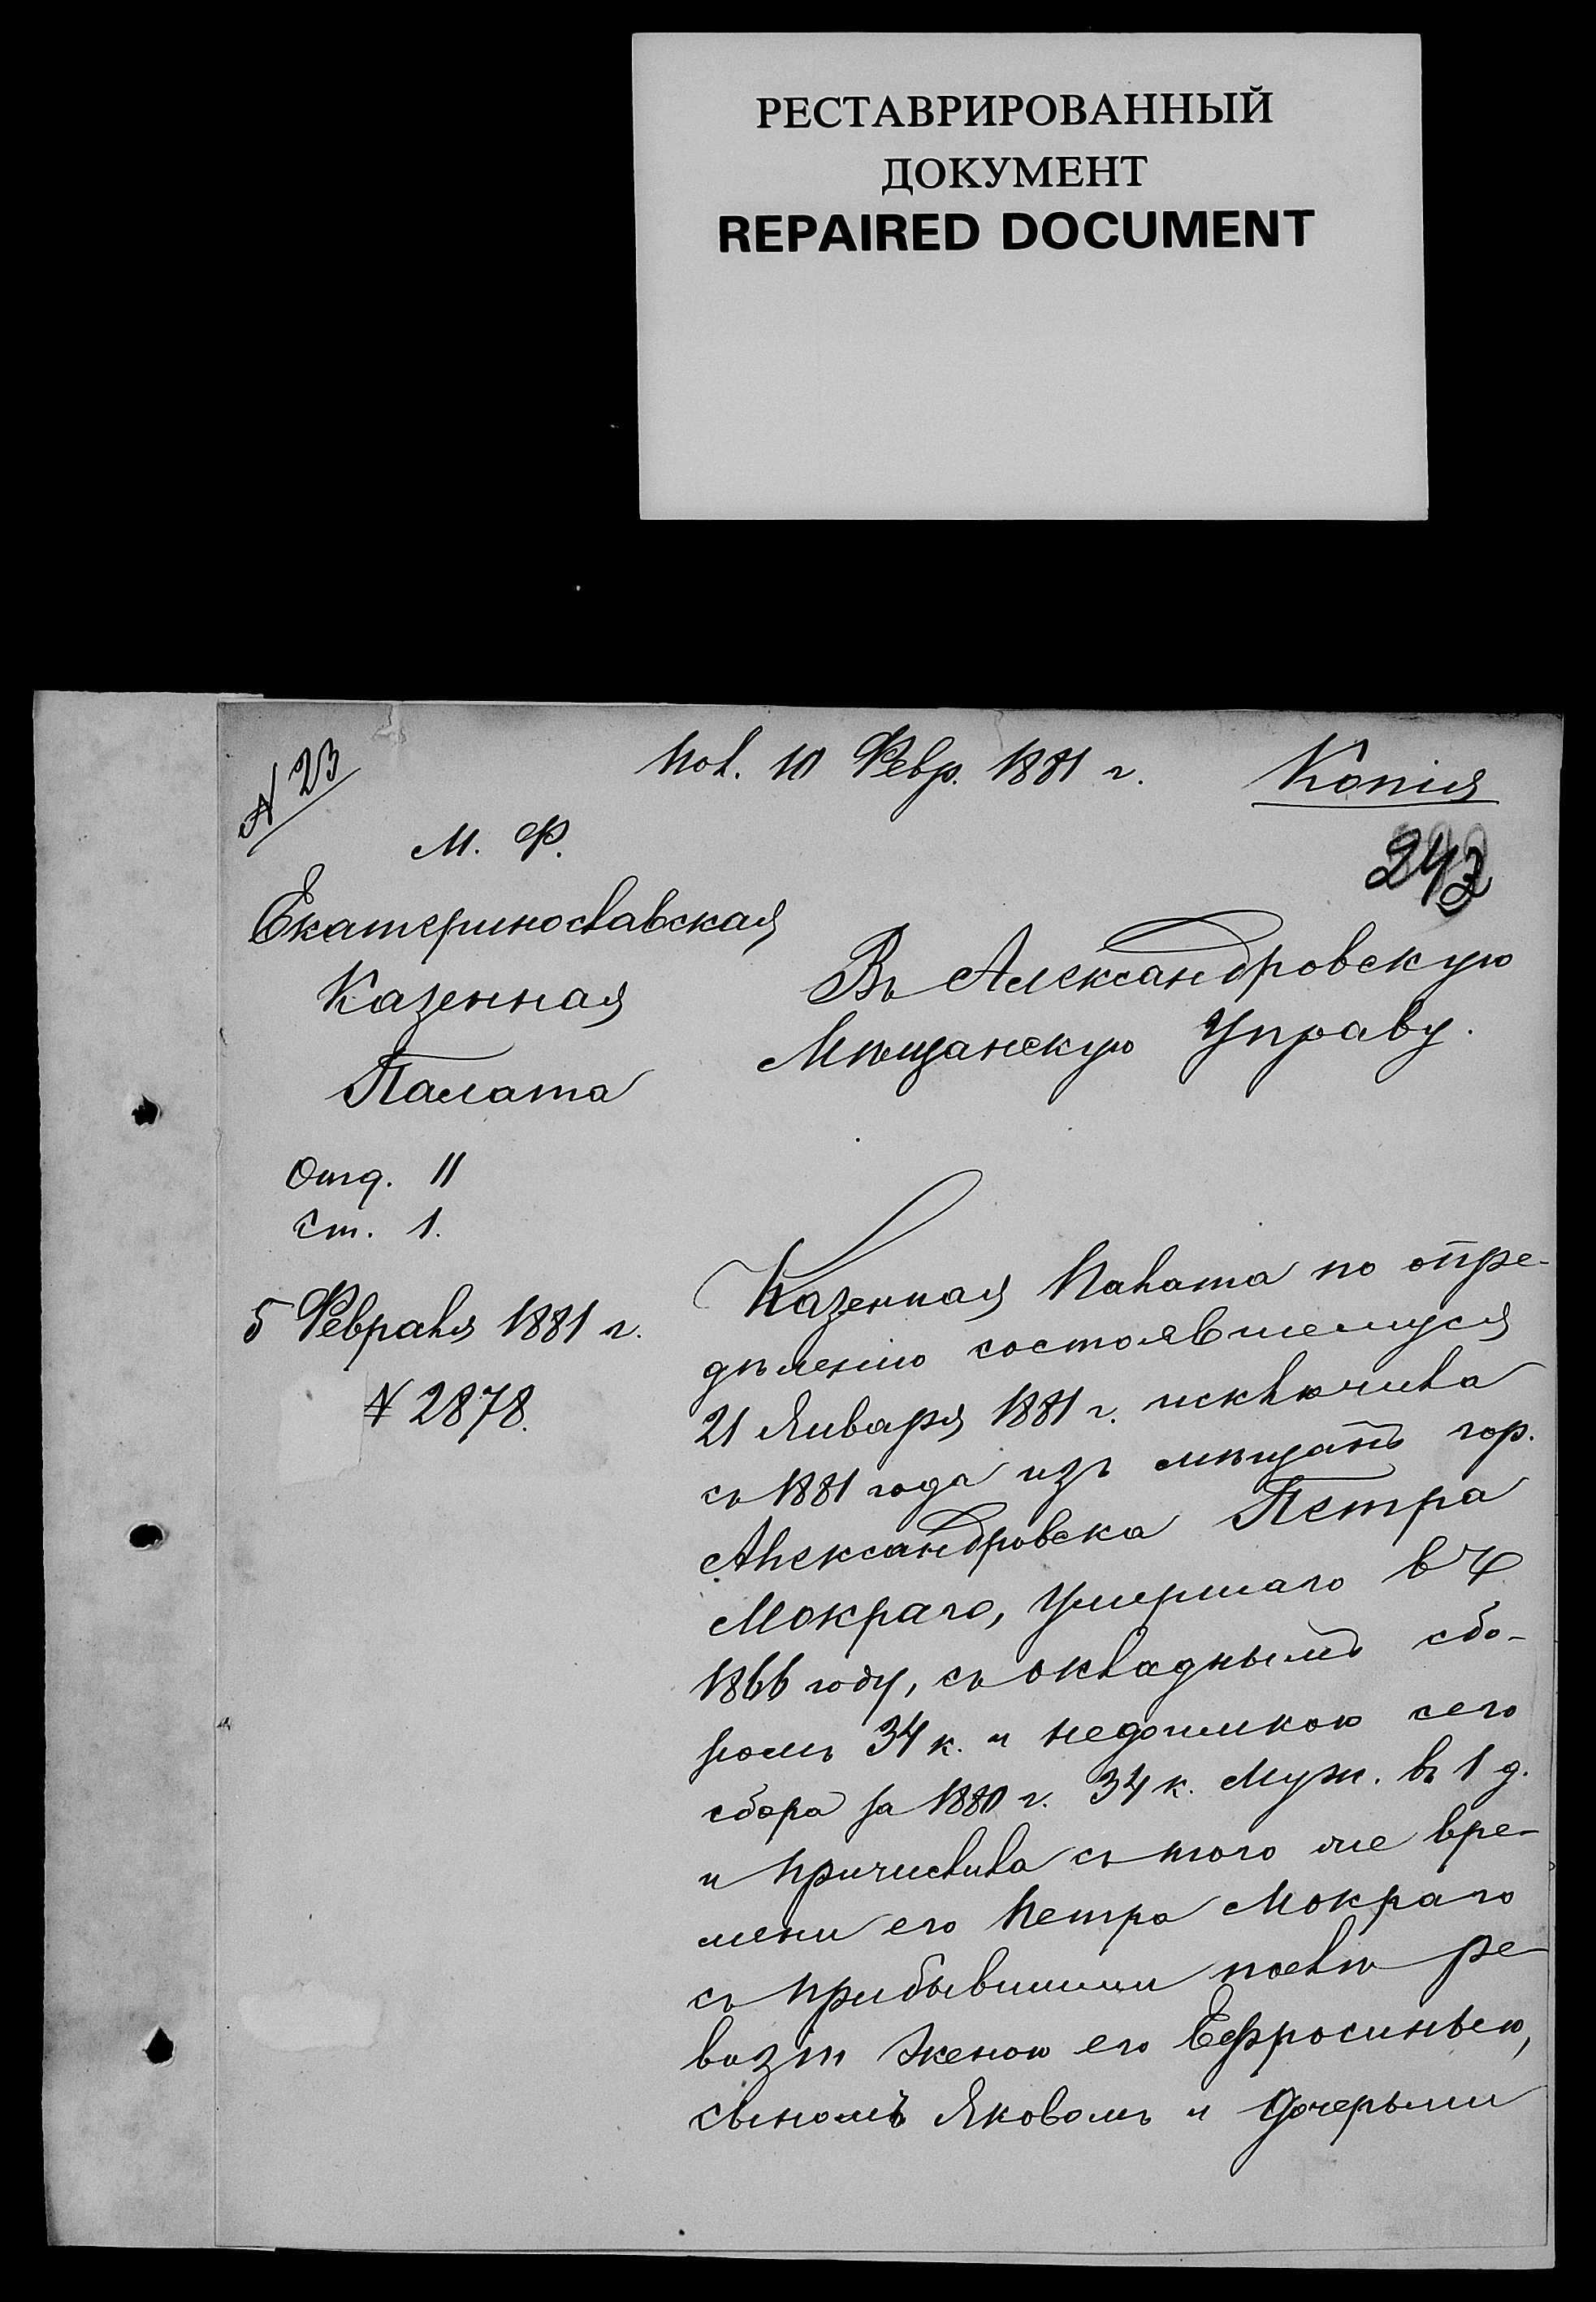 РЕСТАВРИРОВАННЫЙ
ДОКУМЕНТ
REPAIRED DOCUMENT
№ 23
Пол. 10 Февр. 1881 г.
Копія
242
М. Ф.
Екатеринославская
Казенная
Палата
Отд. II
Ст. 1.
5 Февраля 1881 г.
№ 2878.
Въ Александровскую
Мѣщанскую Управу.
Казенная Палата по опре-
дѣленію состоявшемуся
21 Января 1881 г. исключила
съ 1881 года изъ мѣщанъ гор.
Александровска Петра
Мокраго, умершаго въ
1866 году, съ окладнымъ сбо-
ромъ 34 к. и недоимкою сего
сбора за 1880 г. 34 к. Муж. въ 1 д.
и причислила съ того же вре-
мени его Петра Мокраго
съ прибывшими послѣ ре-
визіи женою его Ефросиньею,
сыномъ Яковомъ и дочерьми